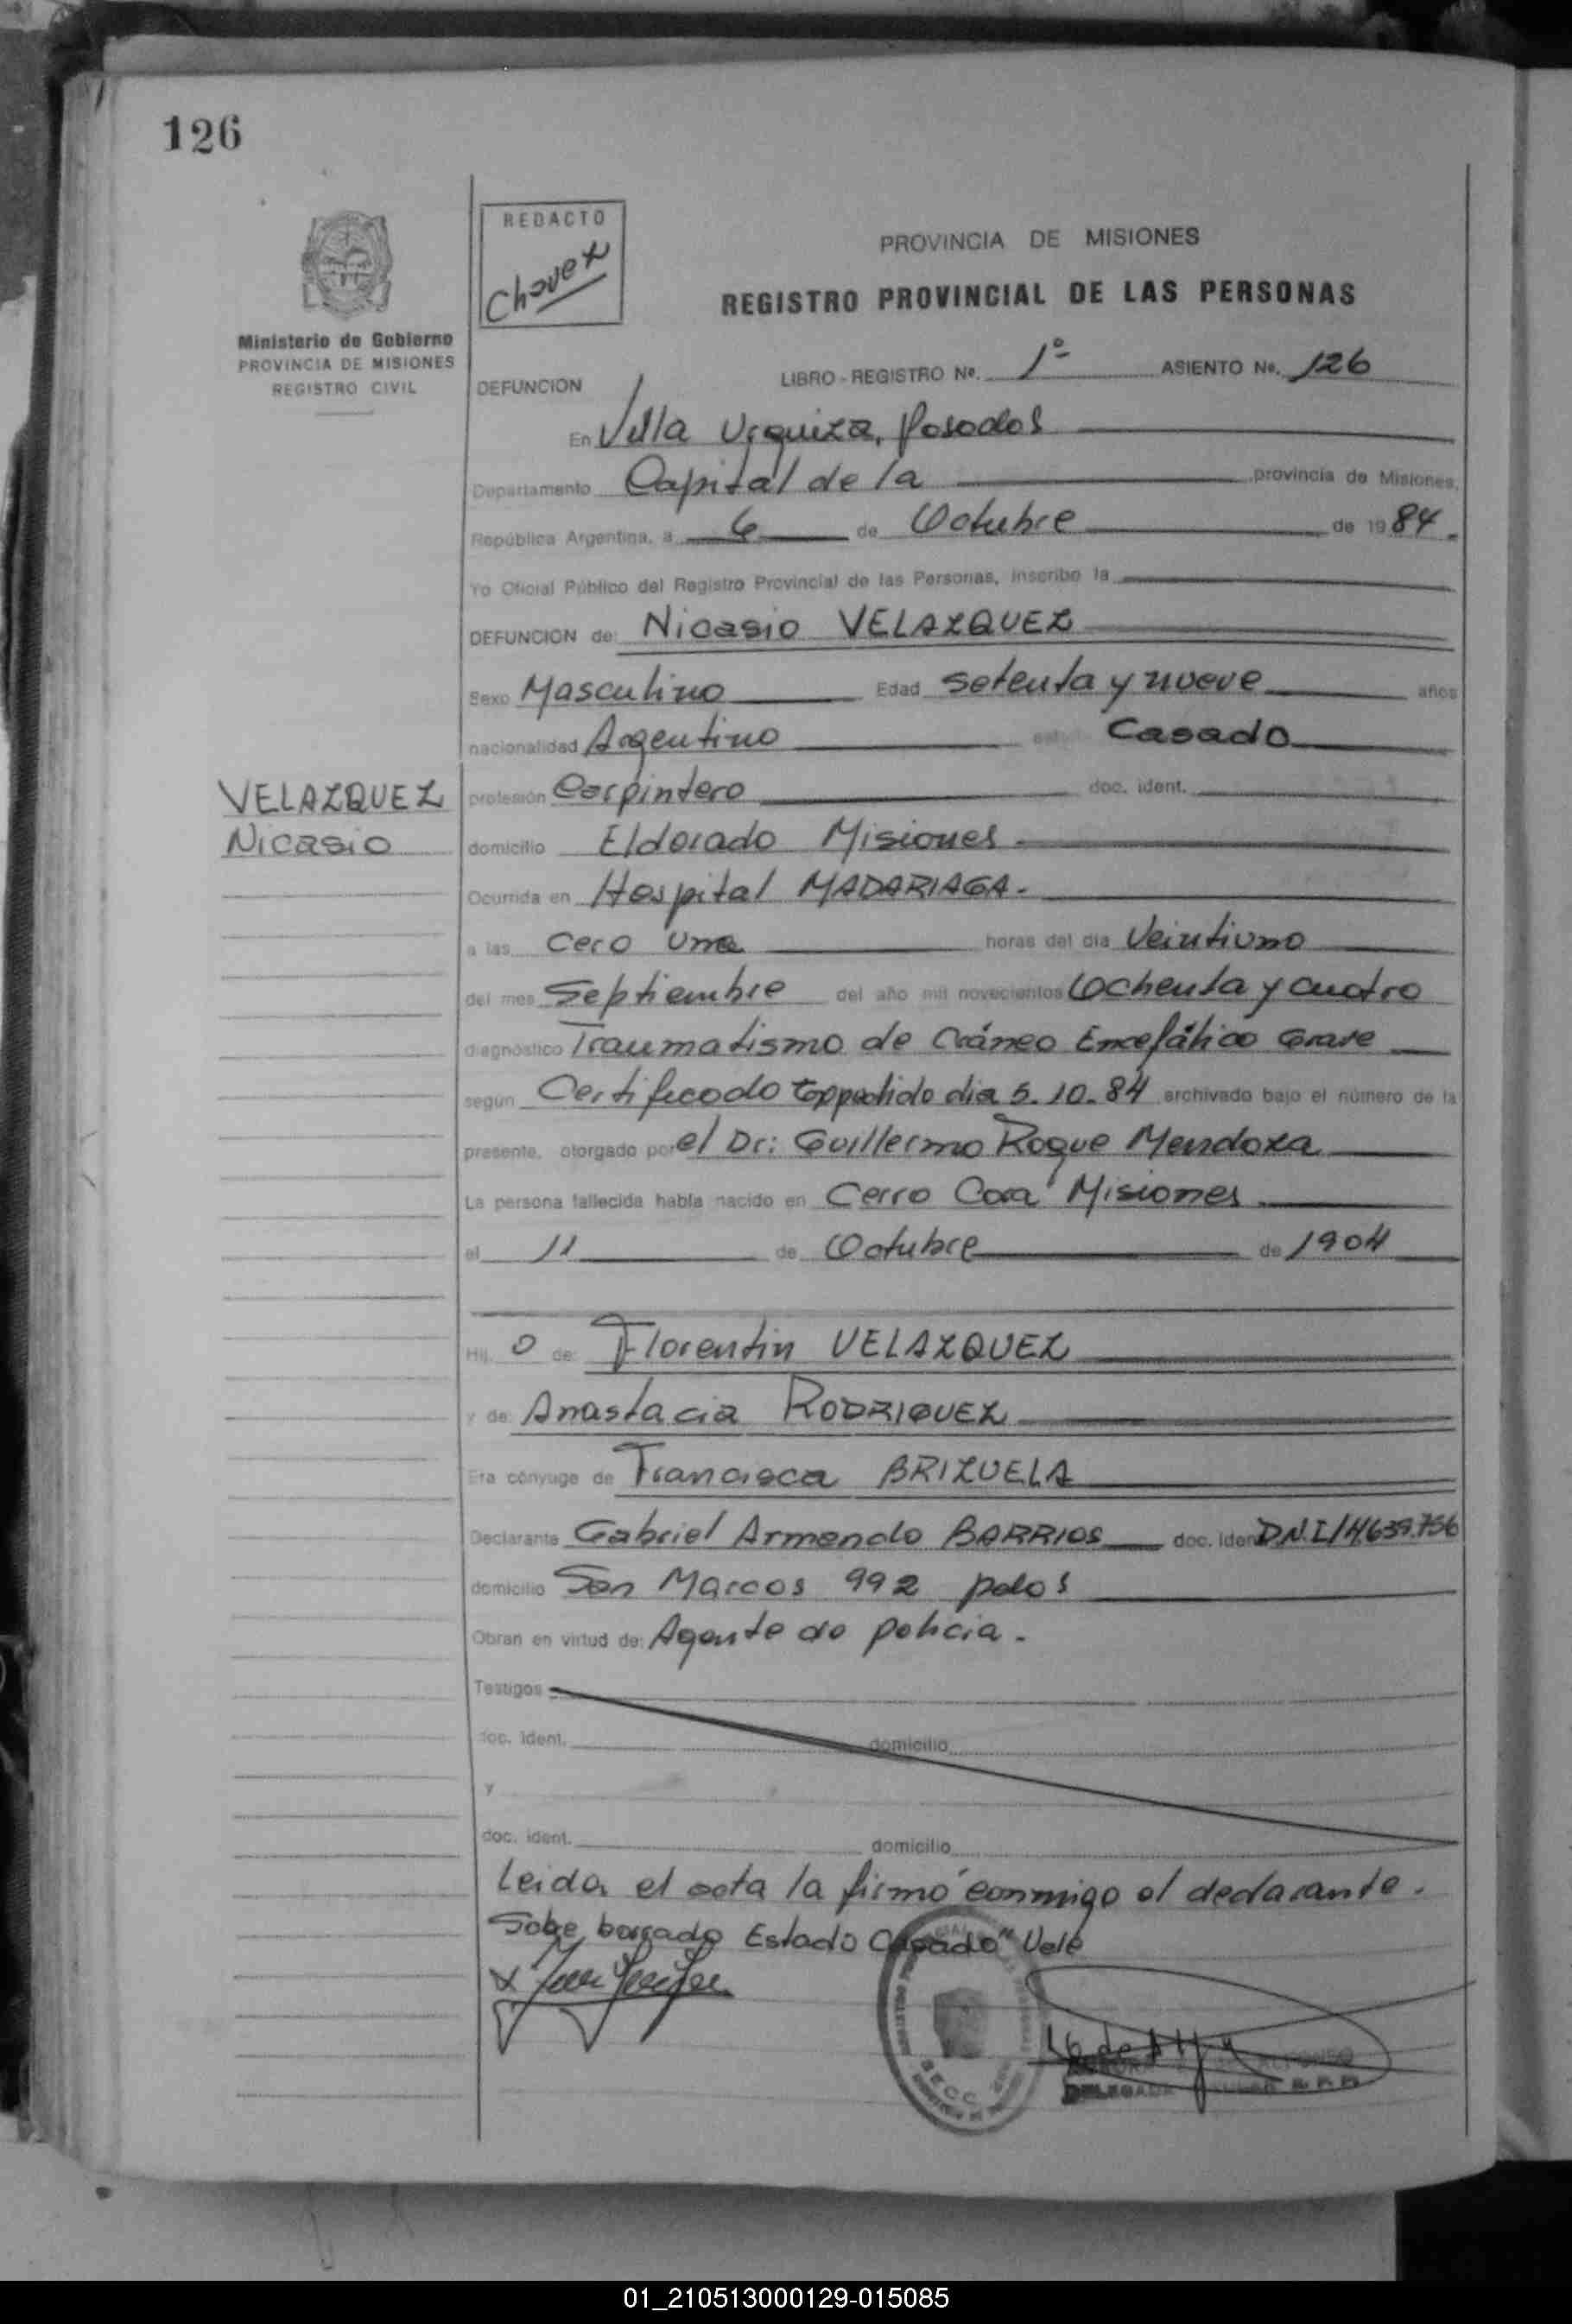 126
REDACTO
Chavez
PROVINCIA DE MISIONES
REGISTRO PROVINCIAL DE LAS PERSONAS
Ministerio de Gobierno
PROVINCIA DE MISIONES
REGISTRO CIVIL
DEFUNCION LIBRO - REGISTRO Nº. 1º ASIENTO No. 126
En Villa Urquiza, Posadas
Departamento Capital de la provincia de Misiones,
República Argentina, a 6 de Octubre de 1984.
Yo Oficial Público del Registro Provincial de las Personas, inscribo la
DEFUNCION de: Nicasio VELAZQUEZ
Sexo Masculino Edad setenta y nueve años
nacionalidad Argentino Casado
VELAZQUEZ
Nicasio
profesión Carpintero doc. ident.
domicilio Eldorado Misiones
Ocurrida en Hospital MADARIAGA.
a las Cero Una horas del día Veintiuno
del mes Septiembre del año mil novecientos Ochenta y cuatro
diagnóstico Traumatismo de Cráneo Encefálico Grave
según Certificado dia 5.10.84 archivado bajo el número de la
presente, otorgado por el Dr: Guillermo Roque Mendoza
La persona fallecida había nacido en Cerro Cora Misiones
el 11 de Octubre de 1904
Hij o de: Florentin VELAZQUEZ
y de: Anastacia RODRIGUEZ
Era cónyuge de Francisca BRIZUELA
Declarante Gabriel Armando BARRIOS doc. iden D.N.I 14.639.756
domicilio San Marcos 992 pdas
Obran en virtud de: Agente de policia.
Testigos
doc. ident. domicilio
y
doc. ident. domicilio
Leida el acta la firmó conmigo el declarante.
Sobe borrado Estado Casado" Vele
SECC.
DELEGADA
01_210513000129-015085